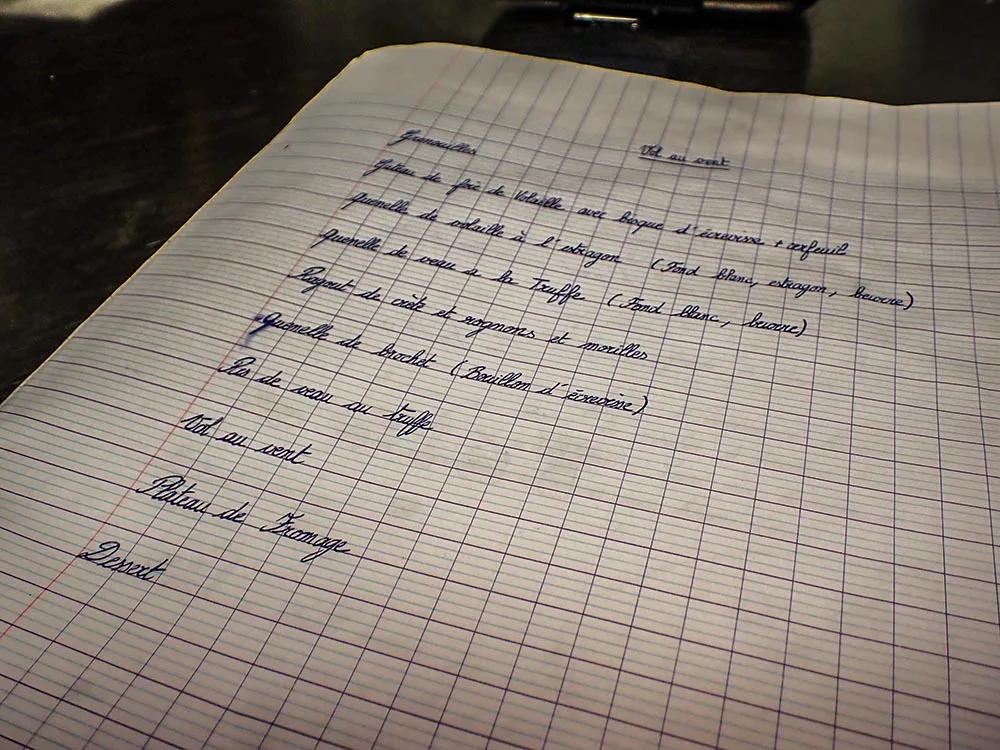 Vol au vent
Grenouilles
Gateau de foie de Volaille avec bisque d'écrevisse + cerfeuil
Quenelle de volaille à l'estragon (Fond blanc, estragon, beurre)
Quenelle de veau a la Truffe (Fond blanc, beurre)
Ragout de crête et rognons et morilles
Quenelle de brochet (Bouillon d'écrevisse)
Ris de veau au truffe
Vol au vent
Plateau de Fromage
Dessert